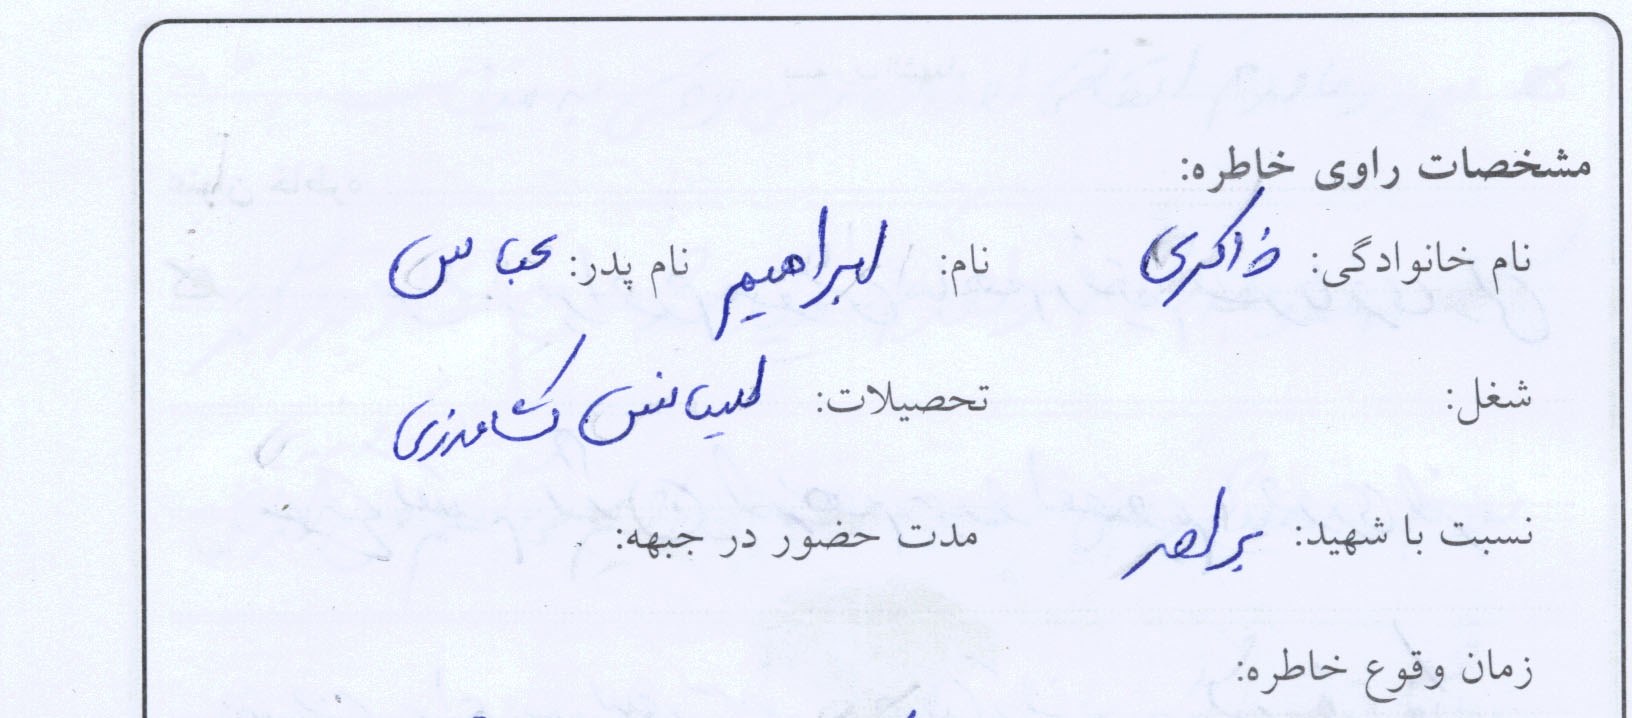 مشخصات راوی خاطره:
نام خانوادگی: ذاکری نام: ابراهیم نام پدر: عباس
شغل: تحصیلات: لیسانس کشاورزی
نسبت با شهید: برادر مدت حضور در جبهه:
زمان وقوع خاطره: